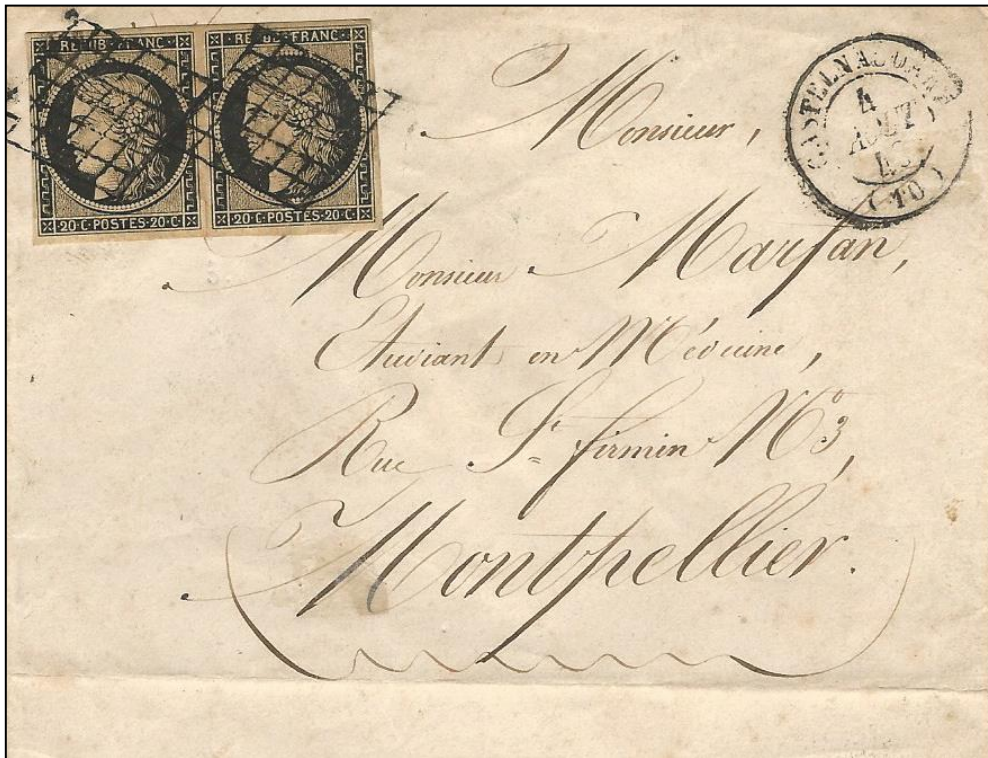 REPUB·FRANC REPUB·FRANC
20·C·POSTES·20·C· 20·C·POSTES·20·C·
CASTELNAUDARY
4
AOUT
(10)
Monsieur,
Monsieur Marfan,
Etudiant en Médecine,
Rue St Firmin No 3,
Montpellier.